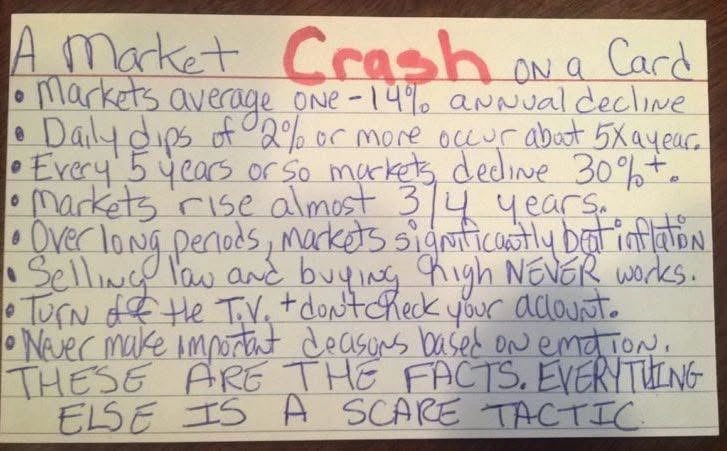 A Market Crash ON a Card
• Markets average ONE -14% annual decline
• Daily dips of 2% or more occur about 5X a year.
• Every 5 years or so markets decline 30%+.
• Markets rise almost 3/4 years.
• Over long periods, markets significantly beat inflation
• Selling low and buying high NEVER works.
• Turn off the T.V. + don't check your account.
• Never make important decasons based on emotion.
THESE ARE THE FACTS. EVERYTHING
ELSE IS A SCARE TACTIC